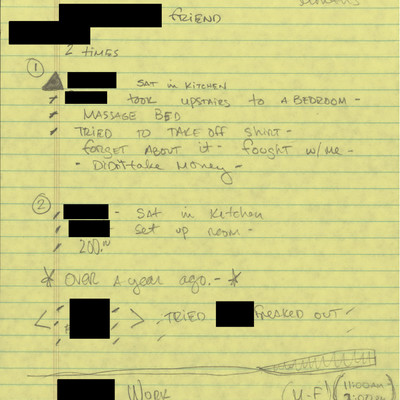 FRIEND
2 times
1
SAT in KITCHEN
took upstairs to A BEDROOM -
MASSAGE BED
TRIED TO TAKE OFF SHIRT -
forget About it - fought w/ me -
- Didn't take money -
2
- SAT in Kitchen
set up room -
200.00
* OVER A year ago. - *
< > TRIED freaked out -
Work
(M-F) (11:00am -